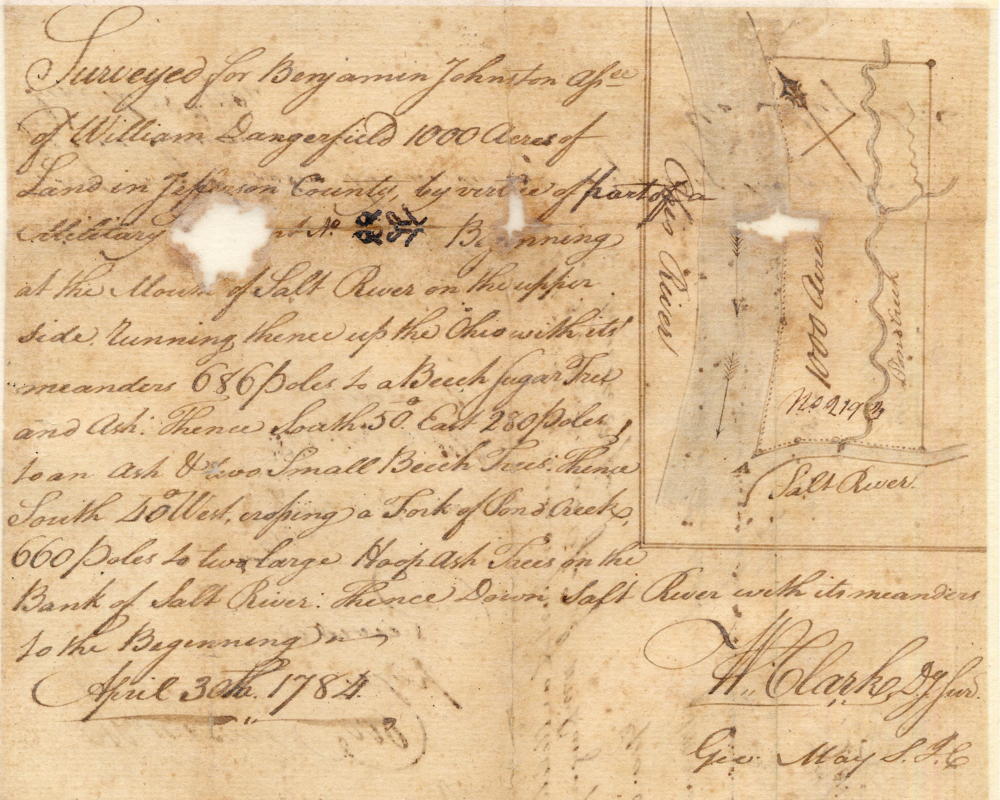 Surveyed for Benjamin Johnston Assee
of William Dangerfield 1000 Acres of
Land in Jefferson County, by virtue of part of a
Military nt No. Beginning
at the Mouth of Salt River on the upper
side running thence up the Ohio with its
meanders 686 poles to a Beech Sugar Tree
and Ash: Thence South 50° East 280 poles
to an Ash & two Small Beech Trees. Thence
South 40° West, crossing a Fork of Pond Creek,
660 poles to two large Hoop Ash Trees on the
Bank of Salt River: Thence Down Salt River with its meanders
to the Beginning
April 30th. 1784
W. Clarke, Dy Sur.
Geo May S. J. C
Ohio River
1000 Acres
Pond Creek
No 2192
A
Salt River.